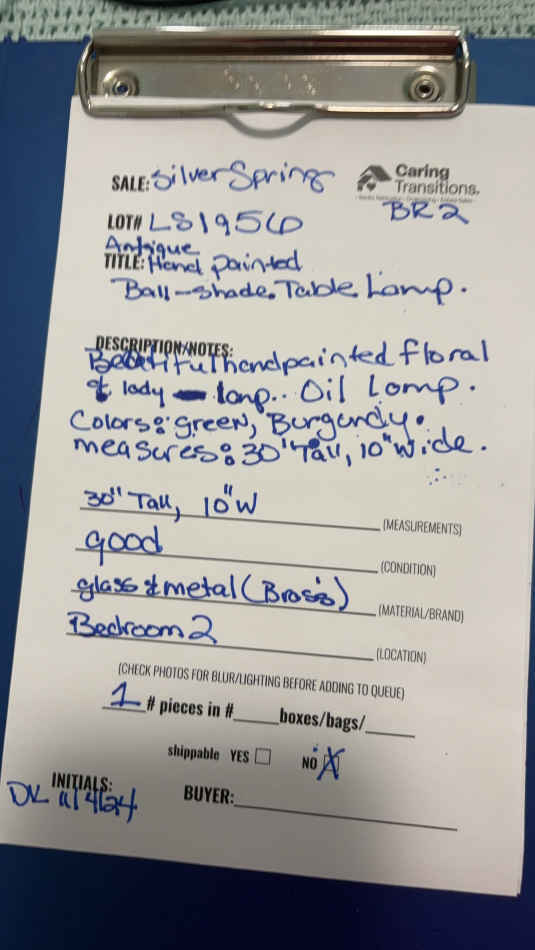 SALE: Silver Spring
Caring
Transitions.
BR2
LOT# LS1956
Antique
TITLE: Hand painted
Ball-shade. Table Lamp.
DESCRIPTION/NOTES:
Beautiful handpainted floral
& lady lamp.. Oil Lamp.
Colors: green, Burgundy.
measures: 30" Tall, 10" wide.
30" Tall, 10" W (MEASUREMENTS)
good (CONDITION)
glass & metal (Brass) (MATERIAL/BRAND)
Bedroom 2 (LOCATION)
(CHECK PHOTOS FOR BLUR/LIGHTING BEFORE ADDING TO QUEUE)
1 # pieces in #_____boxes/bags/_____
shippable YES ☐ NO ☒
INITIALS: BUYER:
DL 11/4/24